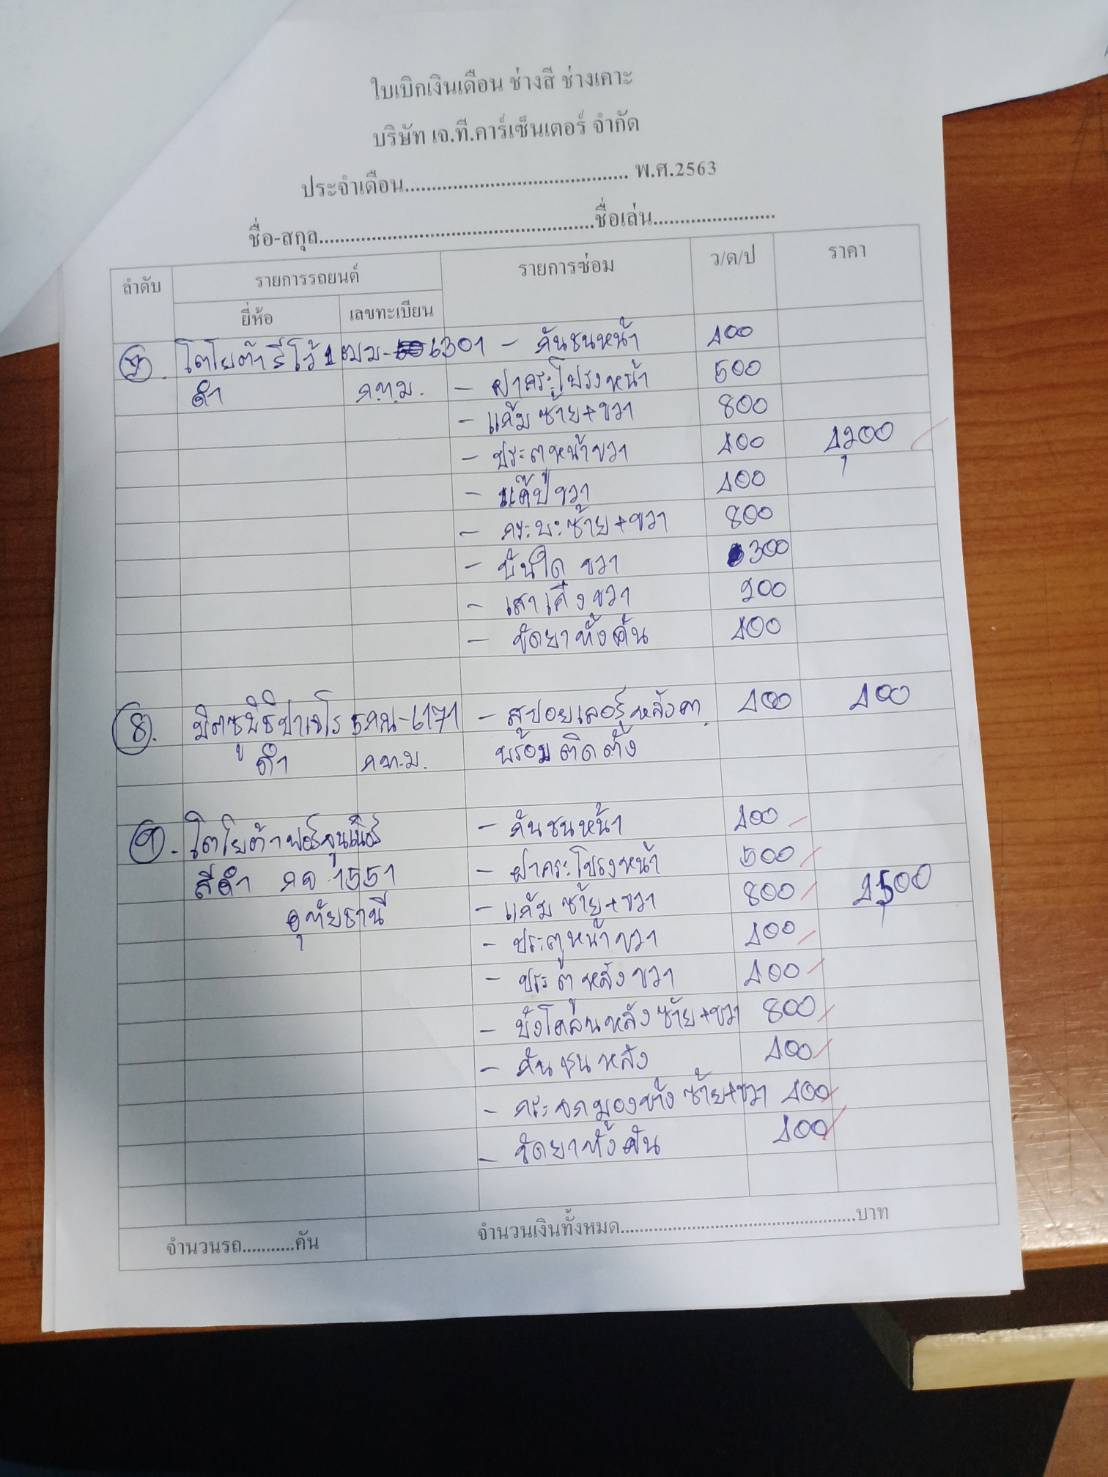 ใบเบิกเงินเดือน ช่างสี ช่างเคาะ
บริษัท เจ.ที.คาร์เซ็นเตอร์ จำกัด
ประจำเดือน........................................ พ.ศ.2563
ชื่อ-สกุล.................................................ชื่อเล่น......................
ลำดับ รายการรถยนต์ รายการซ่อม ว/ด/ป ราคา
ยี่ห้อ เลขทะเบียน
โตโยต้ารีโว้ 6301 - กันชนหน้า 400
ดำ ก.ท.ม. - ฝากระโปรงหน้า 500
- แก้มซ้าย+ขวา 800
- ประตูหน้าขวา 400 4,200
- แค๊ปขวา 400
- กระบะซ้าย+ขวา 800
- บันใด ขวา 300
- เสาเก๋งขวา 200
- ขัดยาทั้งคัน 400
8. มิตซูบิชิปาเจโร 5กฌ-6171 - สปอยเลอร์หลังคา 400 400
ดำ กท.ม. พร้อมติดตั้ง
9. โตโยต้าฟอร์จูนเนอร์ - กันชนหน้า 400
สีดำ กจ 1551 - ฝากระโปรงหน้า 500
อุทัยธานี - แก้มซ้าย+ขวา 800 4,500
- ประตูหน้าขวา 400
- ประตูหลังขวา 400
- บังโคลนหลังซ้าย+ขวา 800
- กันชนหลัง 400
- กระจกมองข้างซ้าย+ขวา 400
- ขัดยาทั้งคัน 400
จำนวนรถ...........คัน จำนวนเงินทั้งหมด..............................................บาท